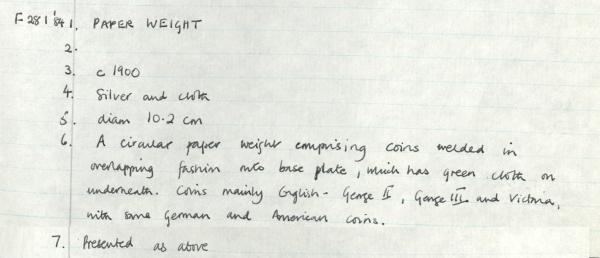 F281'84 1. PAPER WEIGHT
2.
3. c 1900
4. Silver and cloth
5. diam 10.2 cm
6. A circular paper weight comprising coins welded in
overlapping fashion onto base plate, which has green cloth on
underneath. Coins mainly English - George II, George III and Victoria,
with some German and American coins.
7. Presented as above